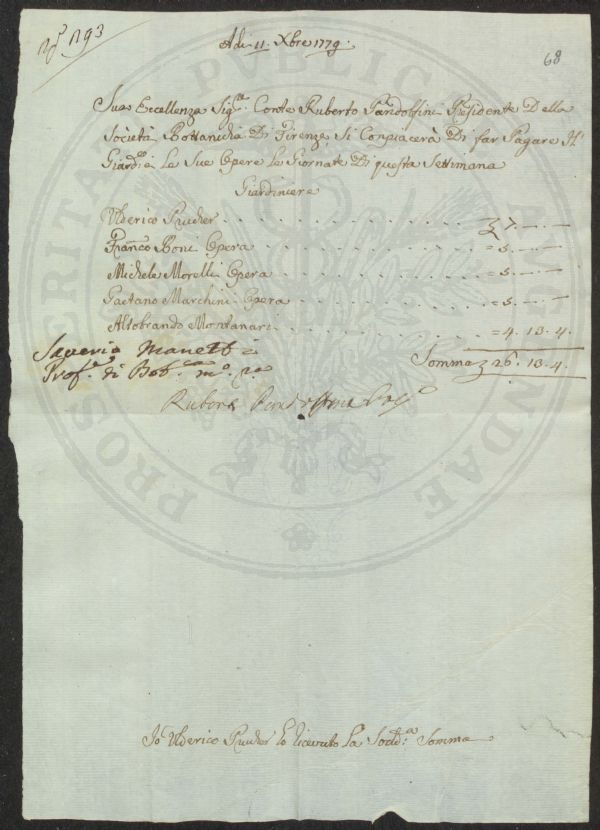 N.º 1293
Adi 11. Xbre 1779.
68
Sua Eccellenza Sig.re Conte Ruberto Pandolfini Presidente Della
Società Bottanicha Di Firenze, Si Conpiacerà Di far Pagare Il
Giardi.e Le Sue Opere Le Giornate Di questa Settimana
Giardiniere
Ulderico Prucher . . . . . . . . . . . . . 7. — . —
Fran.co Boni Opera . . . . . . . . . . . . = 5. — . —
Michele Morelli Opera . . . . . . . . . . . = 5. — . —
Gaetano Marchini Opera . . . . . . . . . . = 5. — . —
Altobrando Montanari . . . . . . . . . . . = 4. 13. 4.
Somma 26. 13. 4.
Saverio Manetti
Prof.e di Bot.ca m.o p.a
Ruberto Pandolfini Pres.e
Io Ulderico Prucher ho ricevuto La Sodd.a Somma
PROSPERITATI PUBLICAE AUGENDAE